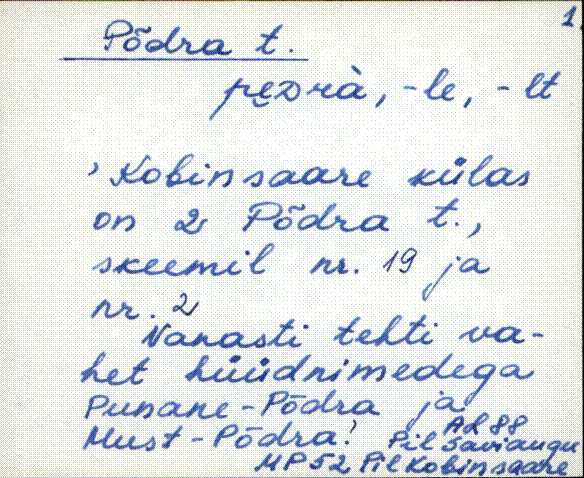 1.
Põdra t.
pęᴅrà, -le, -lt
’Kobinsaare külas
on 2 Põdra t.,
skeemil nr. 19 ja
nr. 2
Vanasti tehti va-
het hüüdnimedega
Punane-Põdra ja
Must-Põdra.’
AR 88
Pil Saviaugu
MP 52 Pil Kobinsaare